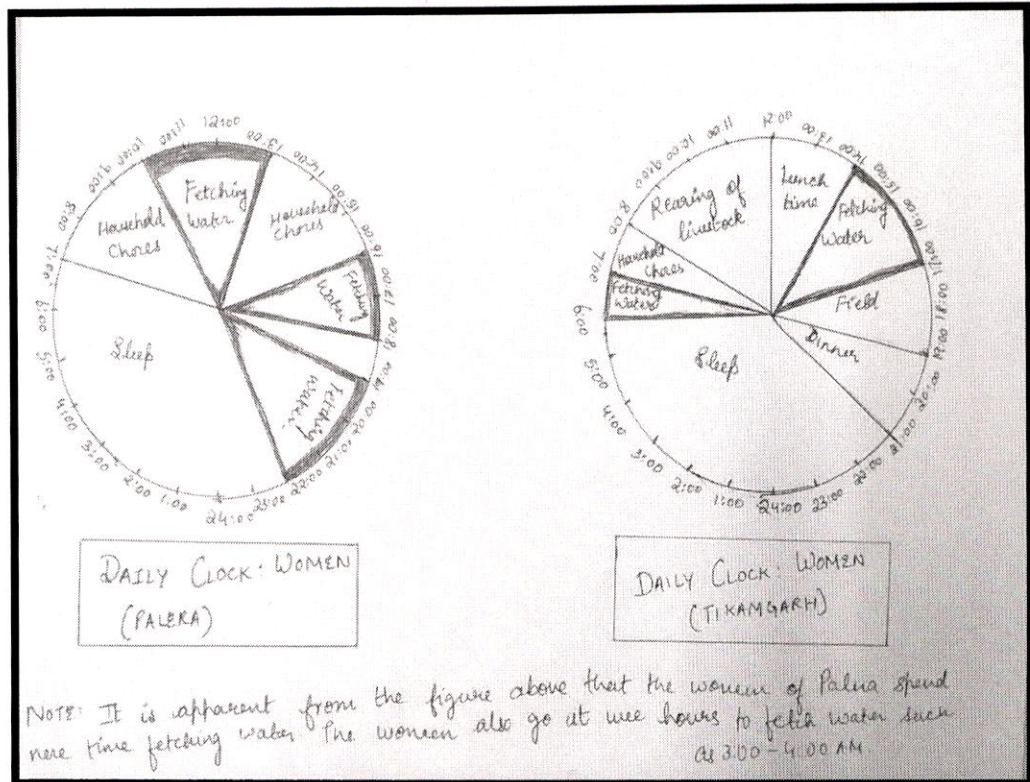 12:00
13:00
14:00
15:00
16:00
17:00
18:00
19:00
20:00
21:00
22:00
23:00
24:00
1:00
2:00
3:00
4:00
5:00
6:00
7:00
8:00
9:00
10:00
11:00
Fetching
Water
Household
Chores
Fetching
Water
Fetching
Water
Sleep
Household
Chores
DAILY CLOCK: WOMEN
(PALERA)
12:00
13:00
14:00
15:00
16:00
17:00
18:00
19:00
20:00
21:00
22:00
23:00
24:00
1:00
2:00
3:00
4:00
5:00
6:00
7:00
8:00
9:00
10:00
11:00
Lunch
time
Fetching
Water
Field
Dinner
Sleep
Fetching
Water
Household
Chores
Rearing of
livestock
DAILY CLOCK: WOMEN
(TIKAMGARH)
NOTE: It is apparent from the figure above that the women of spend
time fetching water. The women also go at wee hours to fetch water such
as 3:00-4:00 AM.